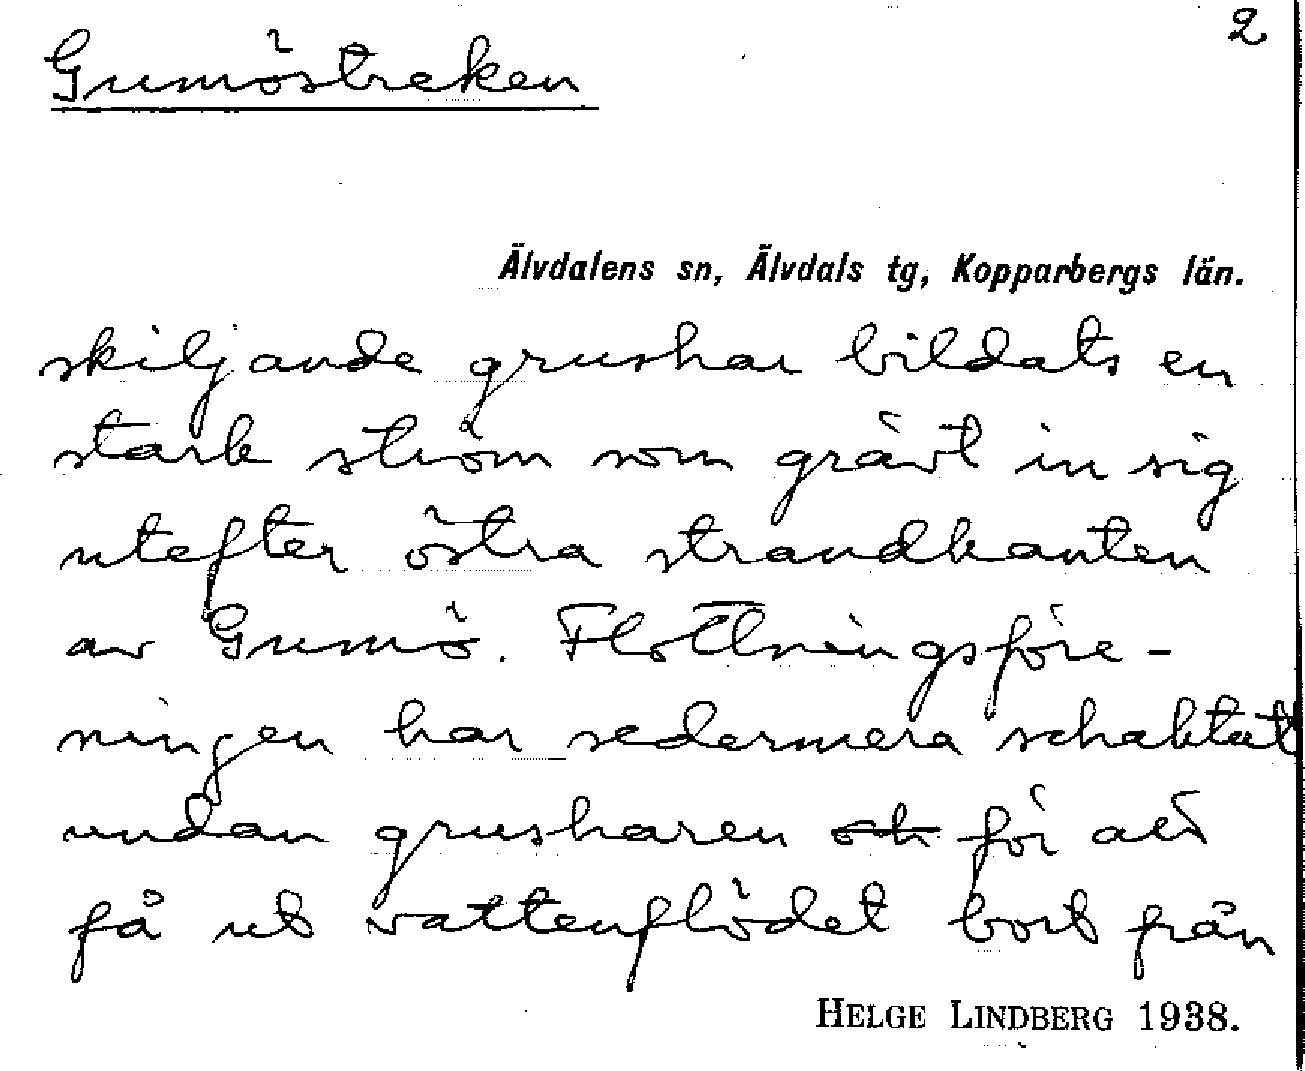 2
Gumöstreken
Älvdalens sn, Älvdals tg, Kopparbergs län.
skiljande grushar bildats en
stark ström som grävt in sig
utefter östra strandkanten
av Gumö. Flottningsföre-
ningen har sedermera schaktat
undan grusharen och för att
få ut vattenflödet bort från
HELGE LINDBERG 1938.